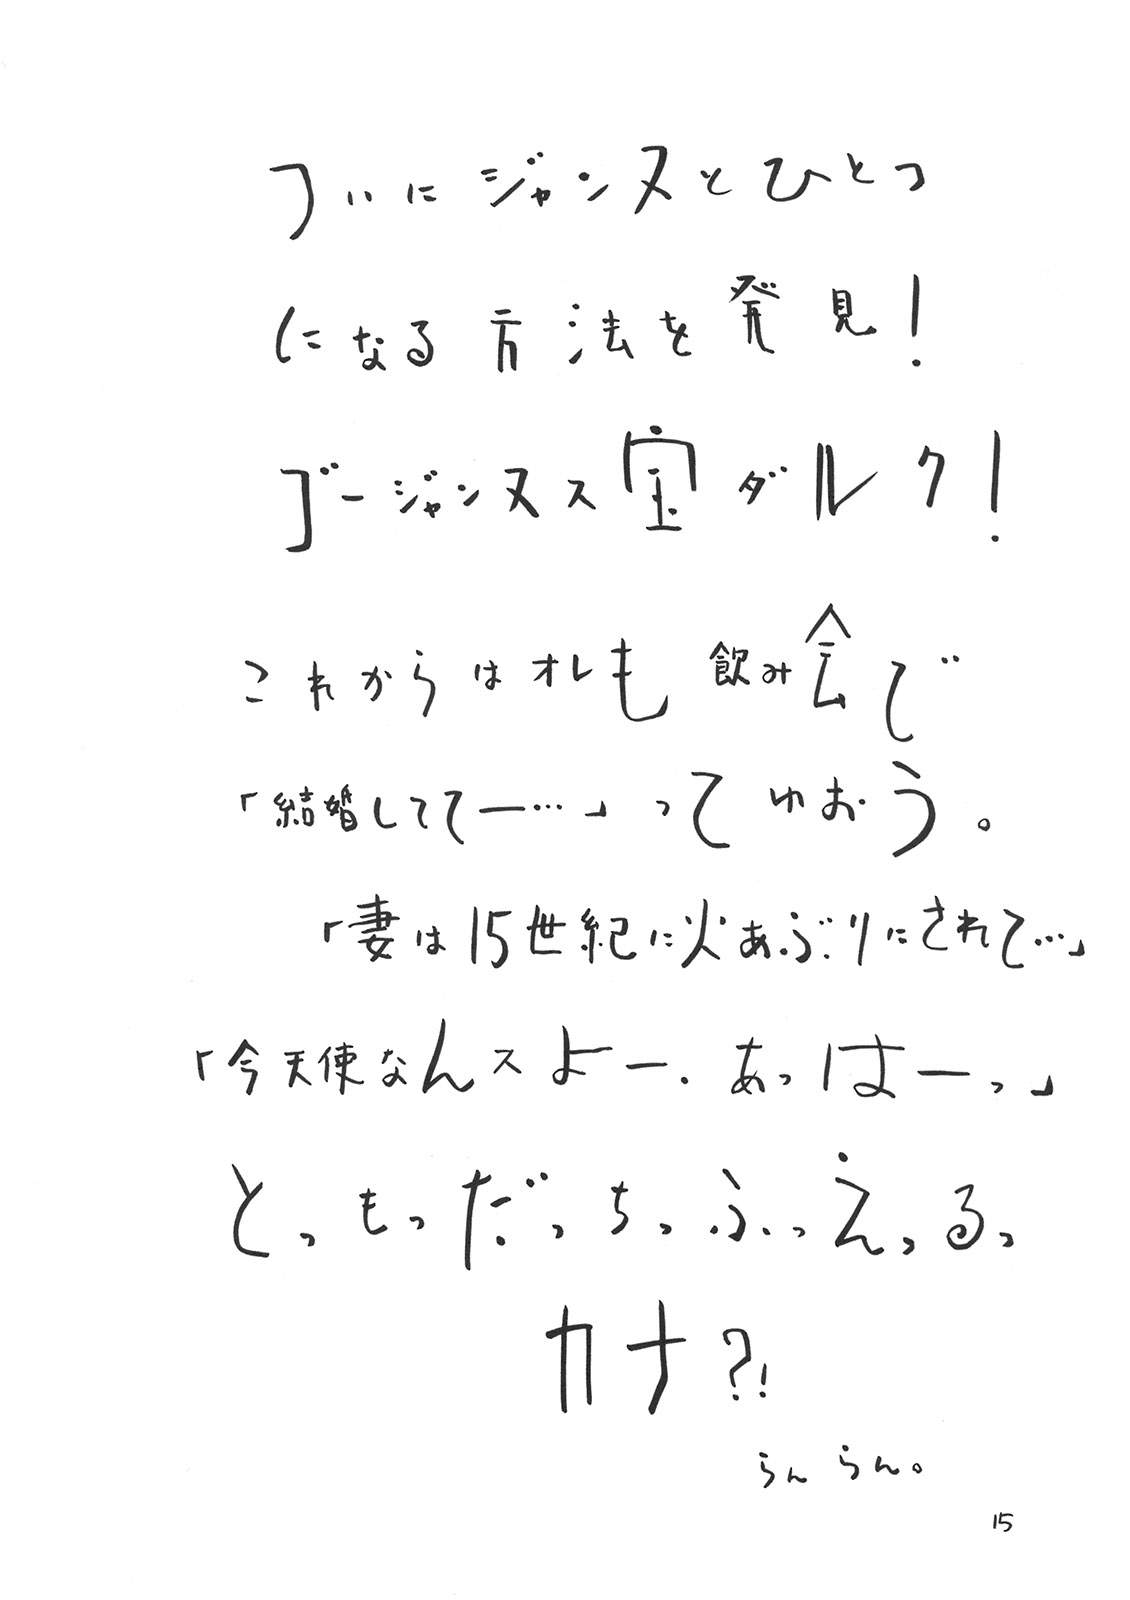 ついにジャンヌとひとつ
になる方法を発見!
ゴージャンヌス宝ダルク!
これからはオレも飲み会で
「結婚しててー…」ってゆおう。
「妻は15世紀に火あぶりにされて…」
「今天使なんスよー.あっはーっ」
とっもっだっちっふっえっるっ
カナ?!
らんらん。
15